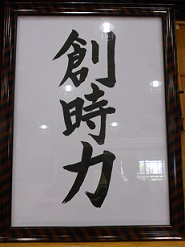 創時力